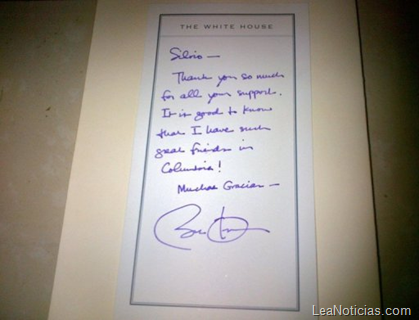 THE WHITE HOUSE
Silvio —
Thank you so much
for all your support.
It is good to know
that I have such
great friends in
Columbia!
Muchas Gracias —
LeaNoticias.com